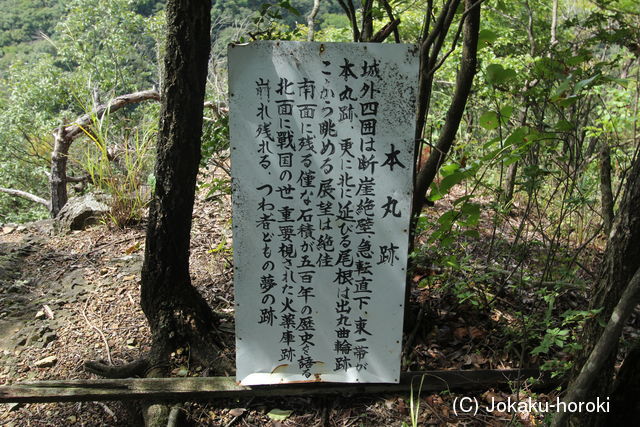 本丸跡
城外四囲は断崖絶壁、急転直下、東一帯が
本丸跡、更に北に延びる尾根は出丸曲輪跡
ここから眺める展望は絶佳
南面に残る僅な石積が五百年の歴史を誇る
北面に戦国の世 重要視された火薬庫跡
崩れ残れる、つわ者どもの夢の跡
(C) Horoku-horoki